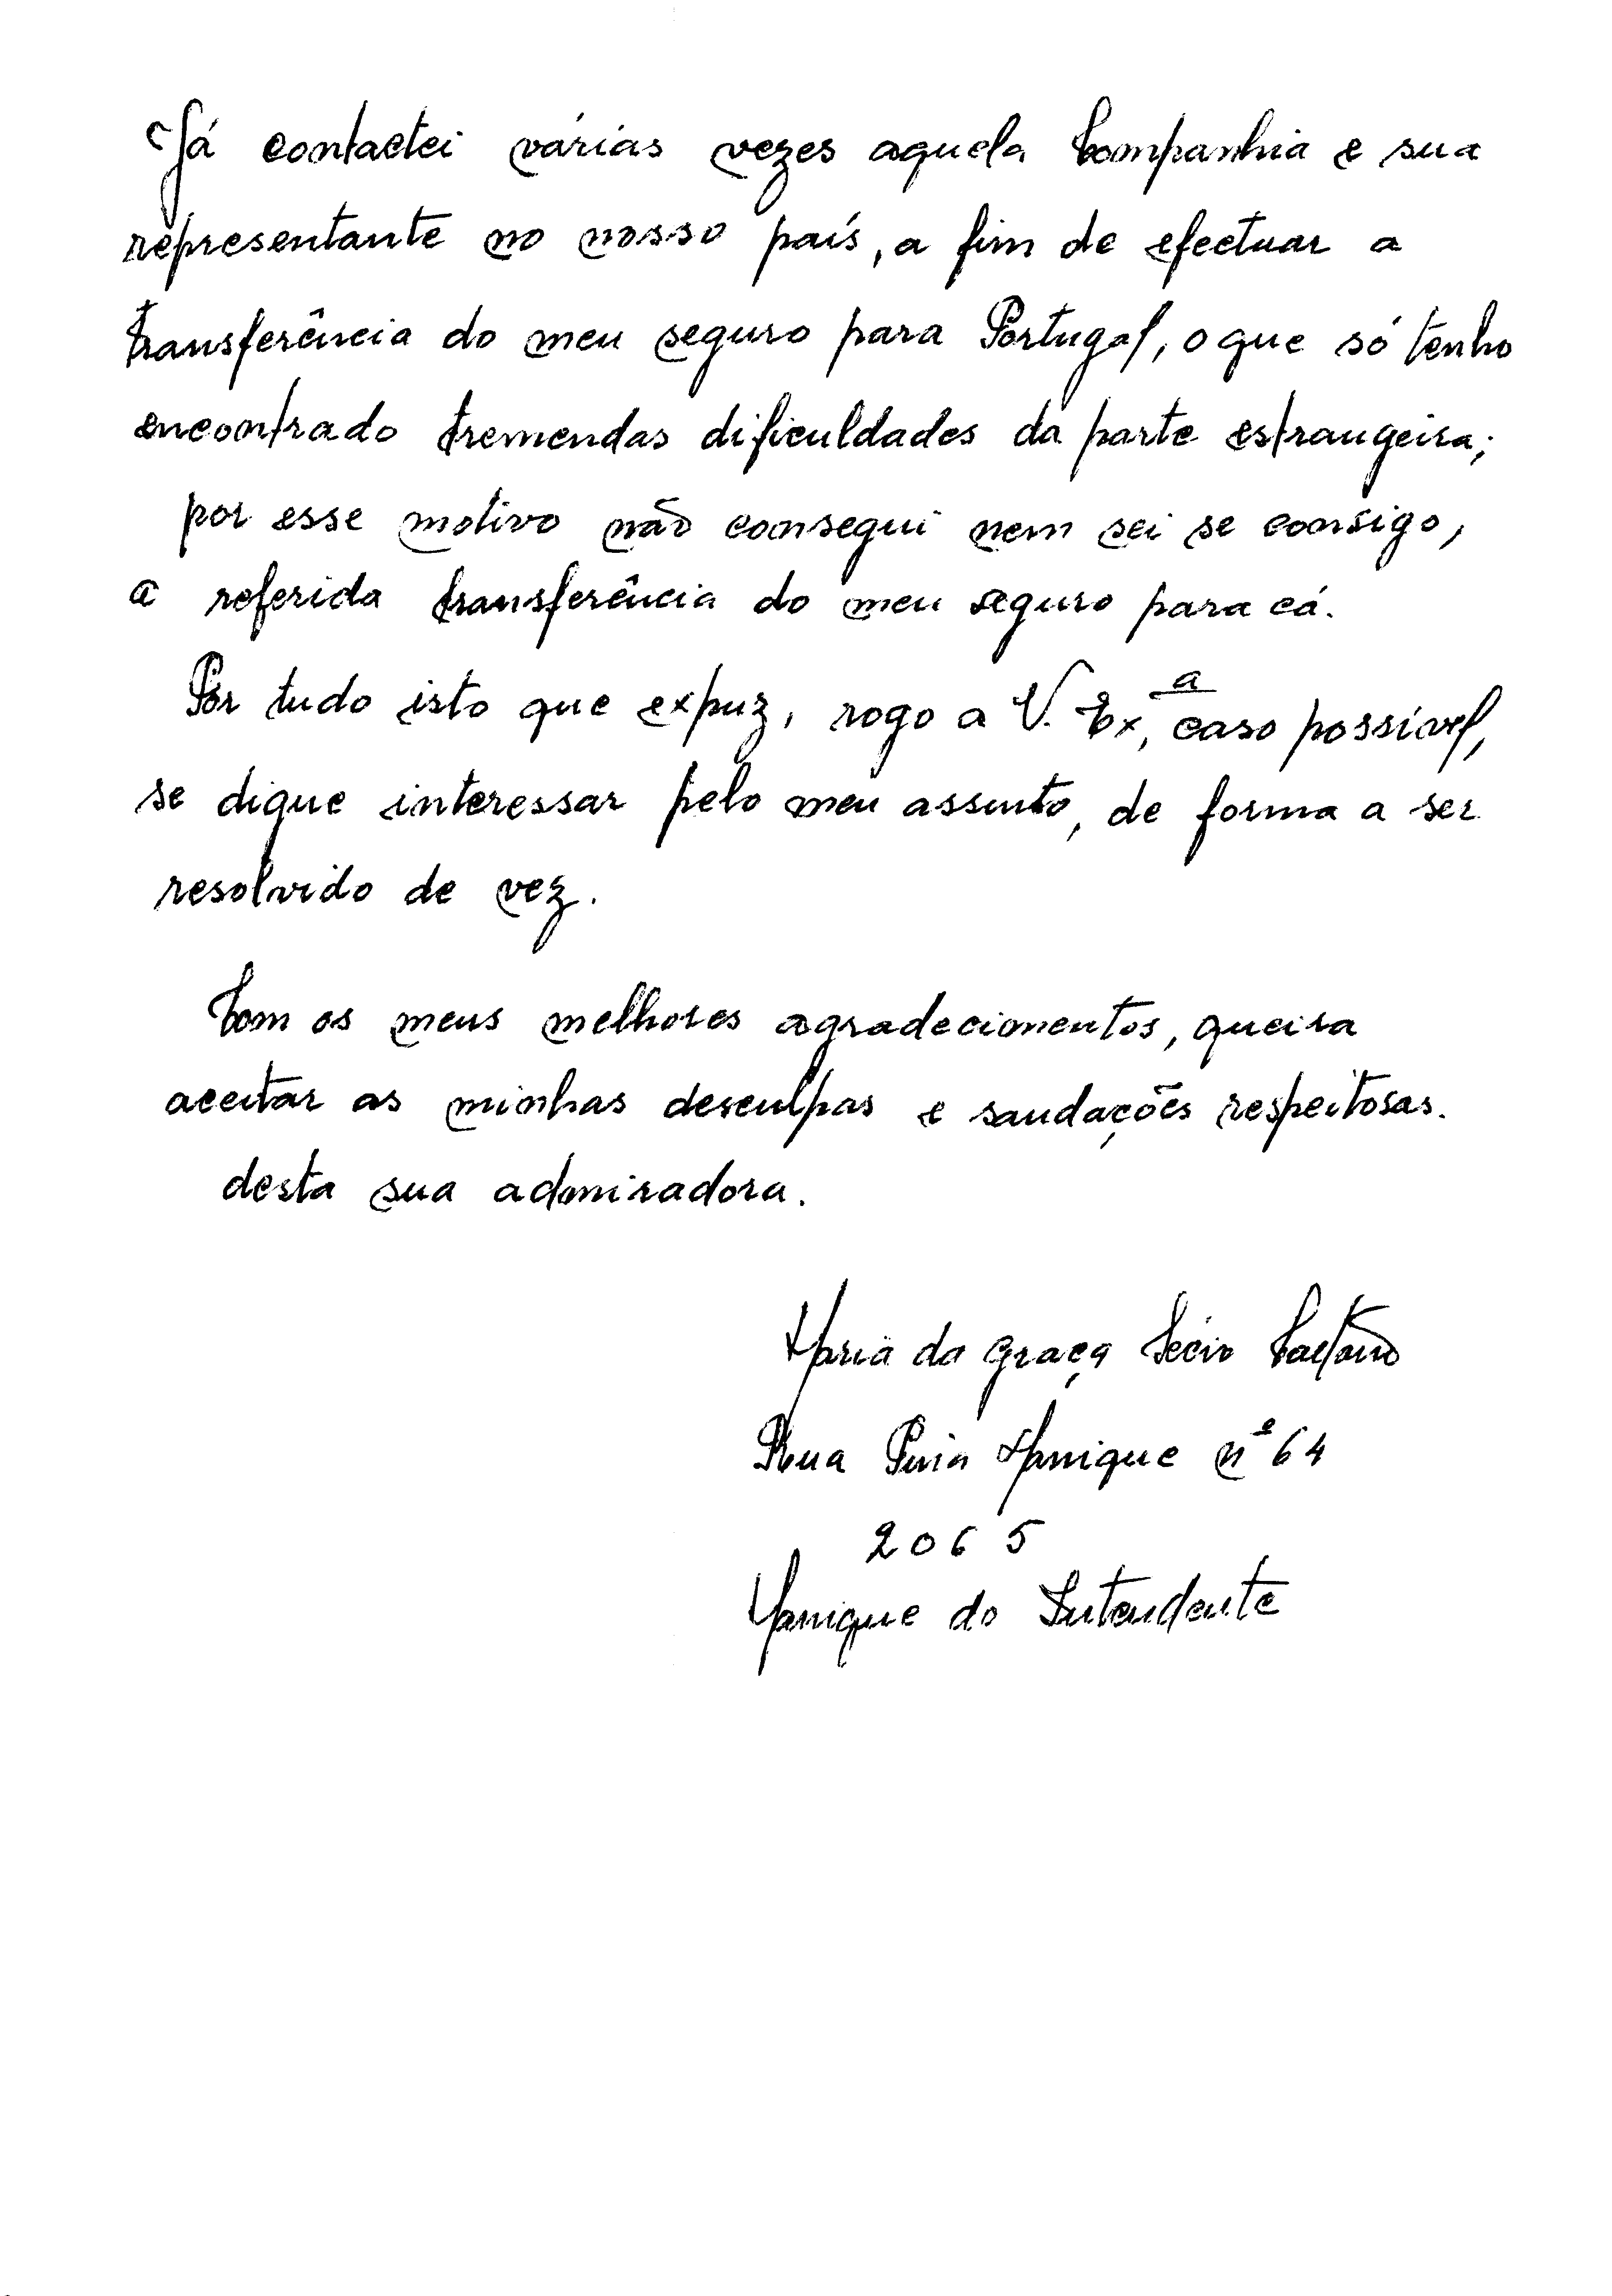 Já contactei várias vezes aquela Companhia e sua
representante no nosso país, a fim de efectuar a
transferência do meu seguro para Portugal, o que só tenho
encontrado tremendas dificuldades da parte estrangeira;
por esse motivo não consegui nem sei se consigo,
a referida transferência do meu seguro para cá.
Por tudo isto que expuz, rogo a V. Ex.ª, caso possível,
se digue interessar pelo meu assunto, de forma a ser
resolvido de vez.
Com os meus melhores agradecimentos, queira
aceitar as minhas desculpas e saudações respeitosas.
desta sua admiradora.
Maria da Graça Caetano
Rua Pina Manique nº 64
2065
Manique do Intendente